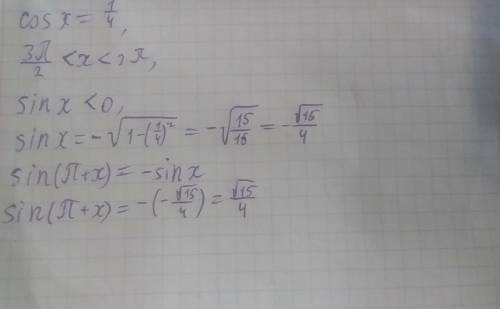 cos x = 1/4,
3П/2 < x < 2П,
sin x < 0,
sin x = -√(1-(1/4)²) = -√(15/16) = -√15/4
sin(П+x) = -sin x
sin(П+x) = -(-√15/4) = √15/4